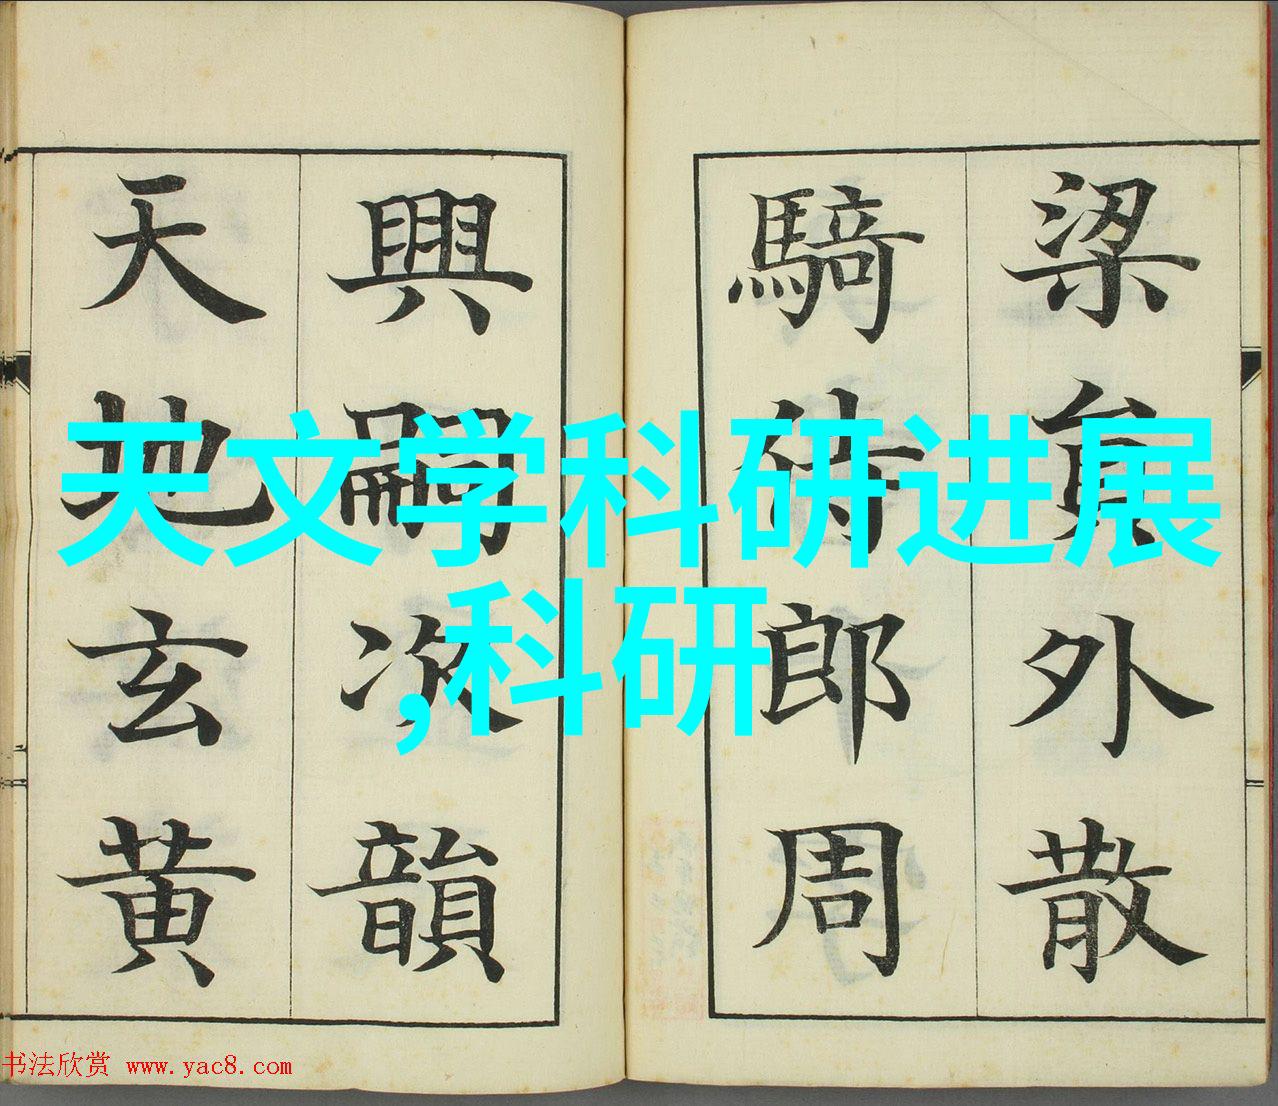 梁貟外散
騎侍郎周
興嗣次韻
天地玄黄
天文学科研进展
,科研
书法欣赏 www.yac8.com